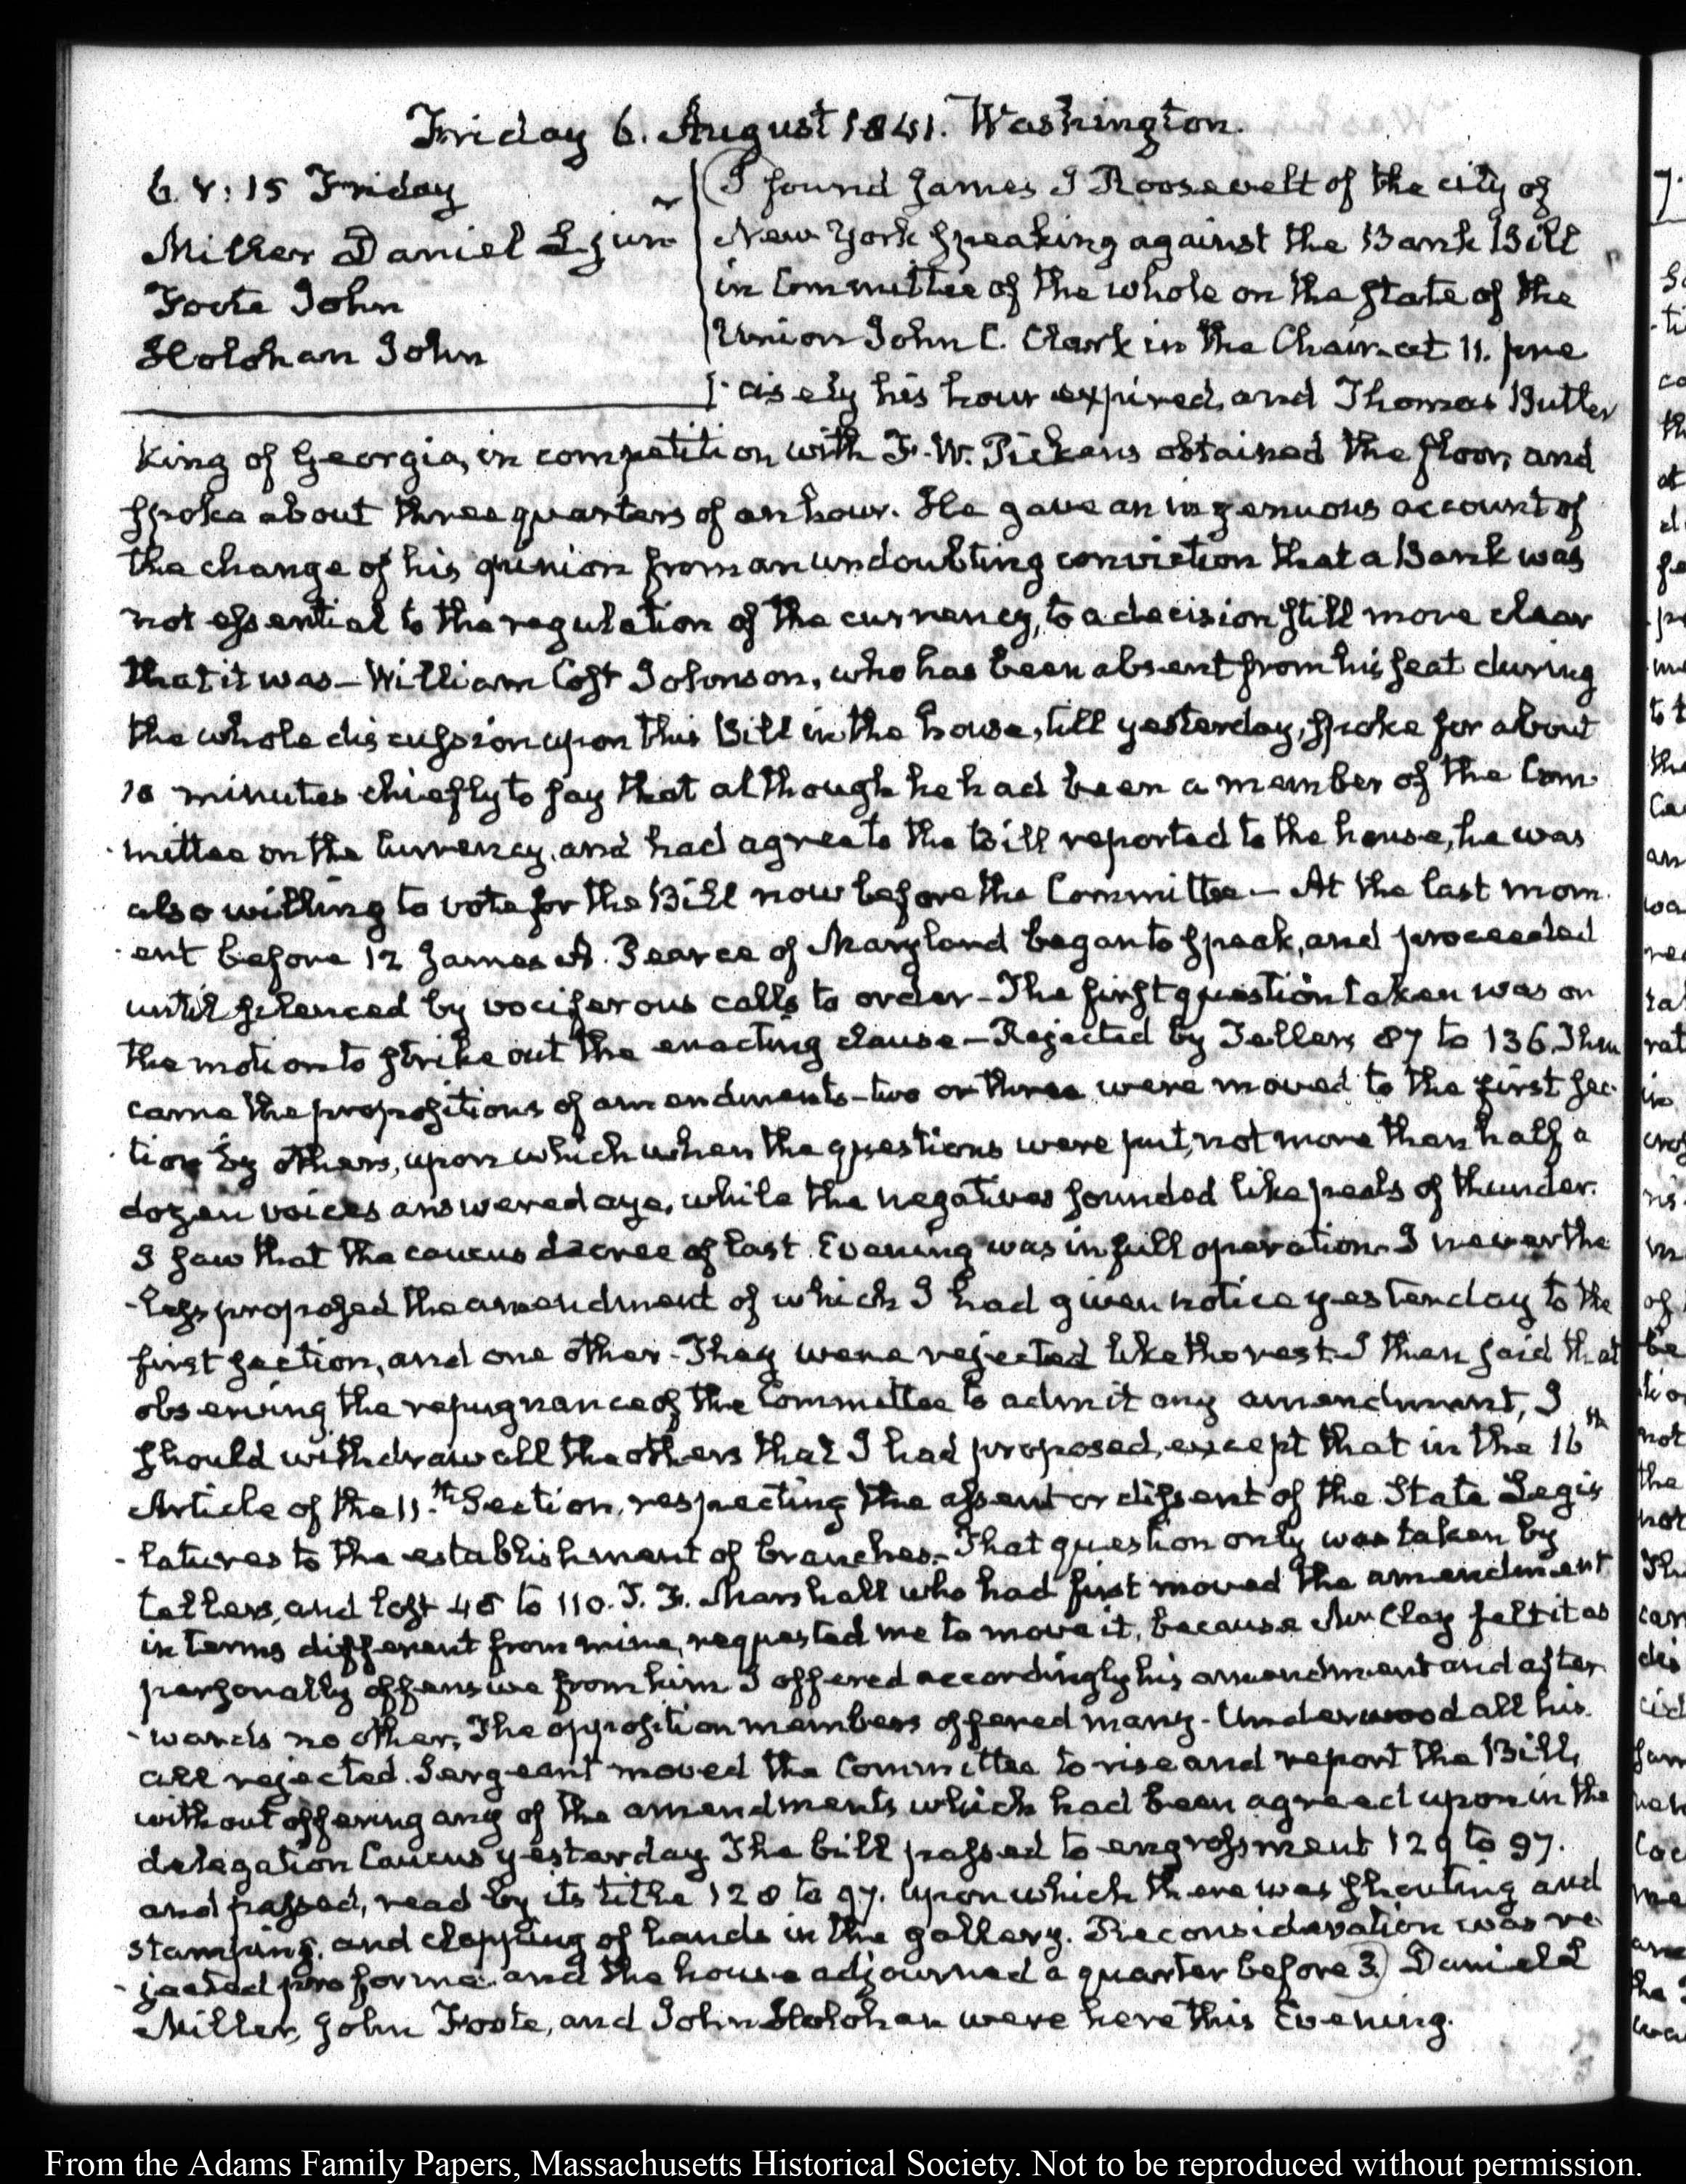 Friday 6. August 1841. Washington.
6. V: 15 Friday
Miller Daniel L jun
Foote John
Holohan John
I found James I Roosevelt of the city of
New York speaking against the Bank Bill
in Committee of the whole on the state of the
Union John C. Clark in the Chair at 11. pre
cisely his hour expired, and Thomas Butler
King of Georgia, in competition with F. W. Pickens obtained the floor, and
spoke about three quarters of an hour. He gave an ingenuous account of
the change of his opinion from an undoubting conviction that a Bank was
not essential to the regulation of the currency, to a decision still more clear
that it was – William Cost Johnson, who has been absent from his seat during
the whole discussion upon this Bill in the house, till yesterday, spoke for about
10 minutes chiefly to say that although he had been a member of the Com
mittee on the Currency, and had agree to the Bill reported to the house, he was
also willing to vote for the Bill now before the Committee – At the last mom
ent before 12 James A. Pearce of Maryland began to speak, and proceeded
until silenced by vociferous calls to order – The first question taken was on
the motion to strike out the enacting clause – Rejected by Tellers 87 to 136. Then
came the propositions of amendments – two or three were moved to the first sec
tion by others, upon which when the questions were put, not more than half a
dozen voices answered aye, while the negatives sounded like peals of thunder.
I saw that the caucus decree of last Evening was in full operation. I neverthe
less proposed the amendment of which I had given notice yesterday to the
first section, and one other – They were rejected like the rest. I then said that
observing the repugnance of the Committee to admit any amendment, I
should withdraw all the others that I had proposed, except that in the 16th
Article of the 11.th Section, respecting the assent or dissent of the State Legis
latures to the establishment of branches – That question only was taken by
tellers, and lost 48 to 110. T. F. Marshall who had first moved the amendment
in terms different from mine, requested me to move it, because Mr Clay felt it as
personally offensive from him I offered accordingly his amendment and after
wards no other. The opposition members offered many – Underwood all his
all rejected. Sergeant moved the Committee to rise and report the Bill,
without offering any of the amendments which had been agreed upon in the
delegation Caucus yesterday The bill passed to engrossment 129 to 97.
and passed, read by its title 128 to 97. upon which there was shouting and
stamping, and clapping of hands in the gallery. Reconsideration was re
jected pro forma and the house adjourned a quarter before 3) Daniel L
Miller, John Foote, and John Holohan were here this Evening.
From the Adams Family Papers, Massachusetts Historical Society. Not to be reproduced without permission.